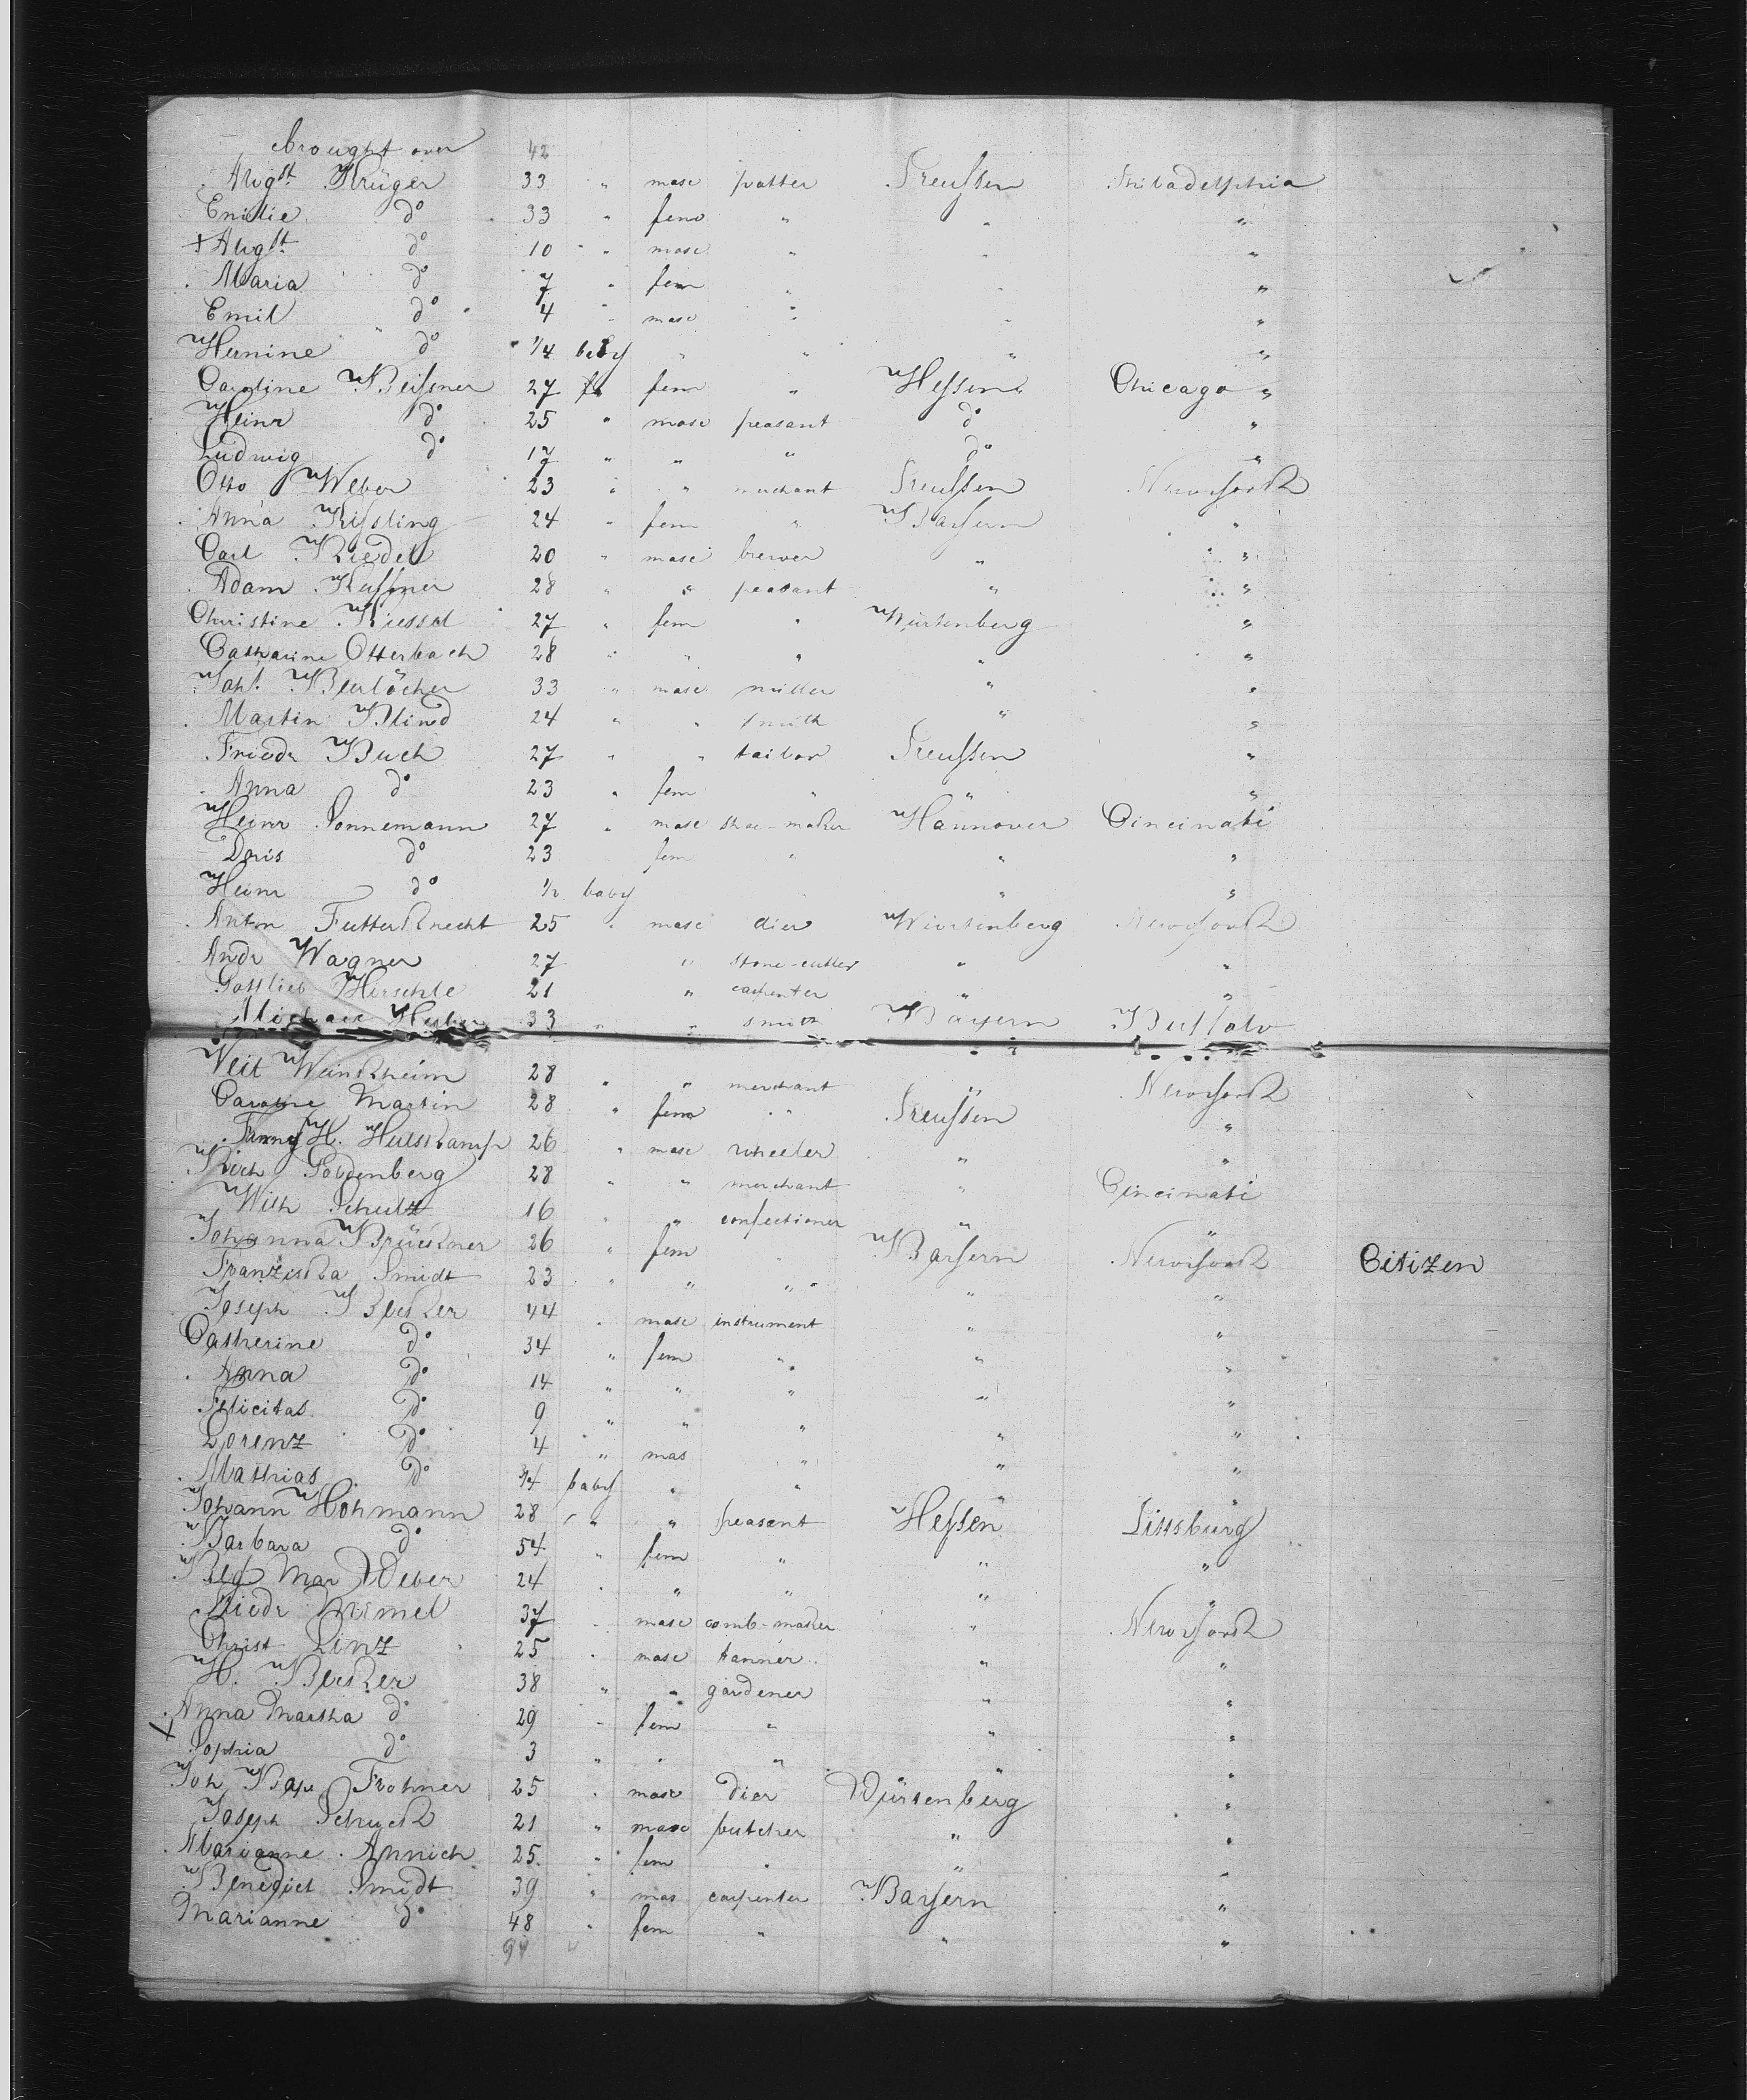 brought over 42
Augst. Krüger 33 " masc potter Preussen Philadelphia
Emilie do 33 " fem " " "
+ Augst. do 10 " masc " " "
Maria do 7 " fem " " "
Emil do 4 " masc " " "
Hermine do 1/4 baby " " " "
Caroline Meissner 27 fem " Hessen Chicago "
Heinr do 25 " masc peasant do "
Ludwig do 17 " " " do "
Otto Weber 23 " " merchant Preussen Newyork
Anna Kissling 24 " fem " Bayern "
Carl Riedel 20 " masc brewer " "
Adam 28 " " peasant " "
Christine 27 " fem " Würtenberg "
Catharine Otterbach 28 " " " " "
Joh. 33 " masc miller " "
Martin Blind 24 " " smith " "
Friedr Buch 27 " " tailor Preussen "
Anna do 23 " fem " " "
Heinr Sonnemann 27 " masc shoe-maker Hannover Cincinati
Doris do 23 fem " " "
Heinr do 1/2 baby " " "
Anton Futterknecht 25 " masc dier Würtenberg Newyork
Andr Wagner 27 " stone-cutter " "
Gottlieb Hirschle 21 " carpenter " "
Michael 33 " " smith Bayern Buffalo
Veit Weinkheim 28 " " merchant " Newyork
Caroline Martin 28 " fem " Preussen "
Fanny H. Hulskamp 26 " masc wheeler " "
Rich Goldenberg 28 " " merchant " Cincinati
Wilh Schultz 16 " " confectioner " "
Johanna Brückner 26 " fem " Bayern Newyork Citizen
Franziska Smidt 23 " " " " "
Joseph Becker 44 " masc instrument " "
Catherine do 34 " fem " " "
Anna do 14 " " " " "
Felicitas do 9 " " " " "
Lorenz do 4 " mas " " "
Mathias do 3/4 baby " " " "
Johann Hohmann 28 " " peasant Hessen Pittsburg
Barbara do 54 " fem " " "
Mar Weber 24 " " " " "
Friedr 37 " masc comb-maker " Newyork
Christ Linz 25 " masc tanner " "
H. Becker 38 " " gardener " "
Anna Martha do 29 " fem " " "
+ Sophia do 3 " " " " "
Joh Bap Frohner 25 " masc dier Würtenberg "
Joseph Schuck 21 " masc butcher " "
Marianne Annich 25 " fem " " "
Benedict Smidt 39 " mas carpenter Bayern "
Marianne do 48 " fem " " "
94